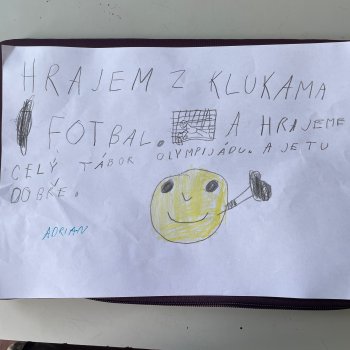 HRAJEM Z KLUKAMA
FOTBAL. A HRAJEME
CELÝ TÁBOR OLYMPIJÁDU. A JE TU
DOBŘE.
ADRIAN